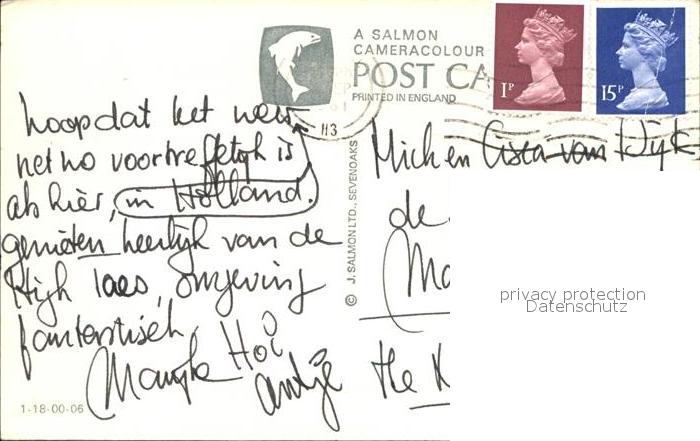 A SALMON
CAMERACOLOUR
POST CA
PRINTED IN ENGLAND
1P
15P
113
hoopdat het weer
net zo voortreffelijk is
als hier, in Holland.
genieten heerlijk van de
High laes, omgeving
fantastisch.
Marijke Hoi
antje
1-18-00-06
© J. SALMON LTD., SEVENOAKS
Mick en Cisca van Dijk
de
Ma
the N
privacy protection
Datenschutz